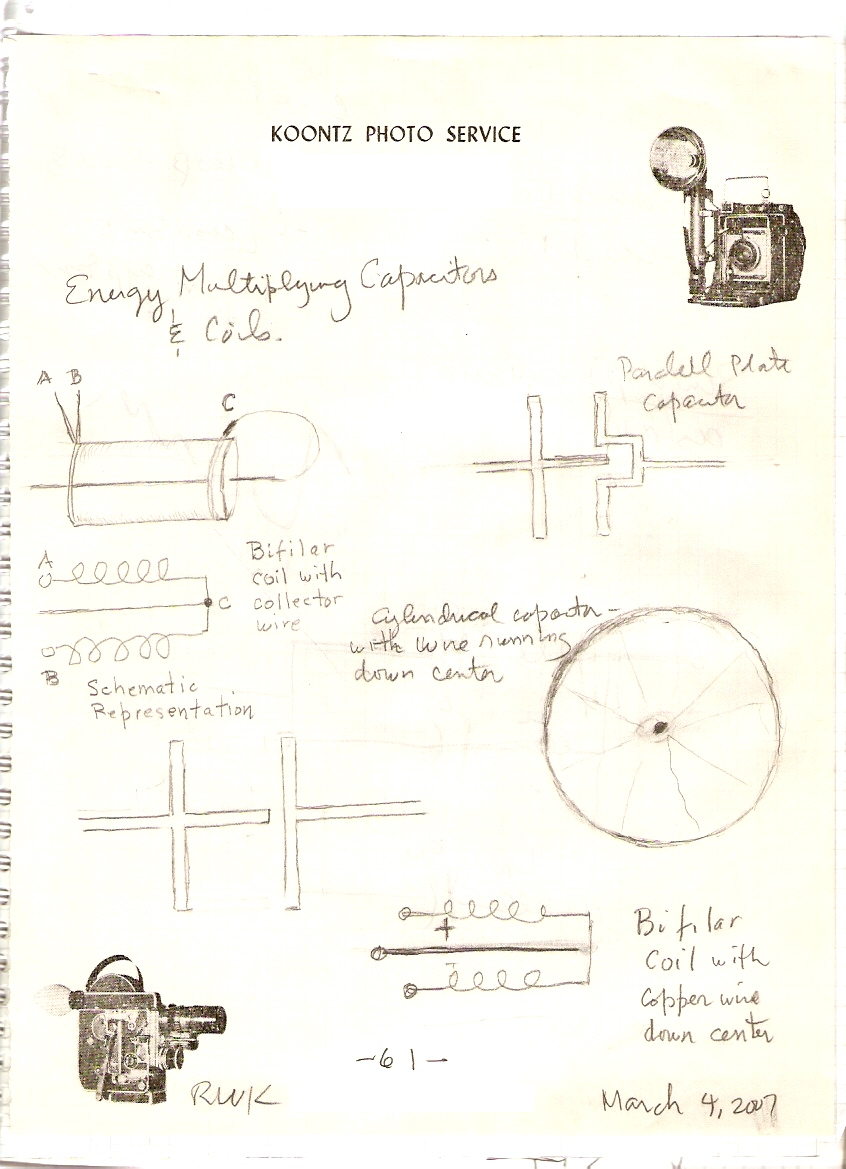 KOONTZ PHOTO SERVICE
Energy Multiplying Capacitors
& Coils.
A B
C
Parallell Plate
Capacitor
A
C
B
Bifilar
coil with
collector
wire
Schematic
Representation
Cylindrical capacitor
with wire running
down center
+
-
Bifilar
Coil with
copper wire
down center
-61-
RWK
March 4, 2007